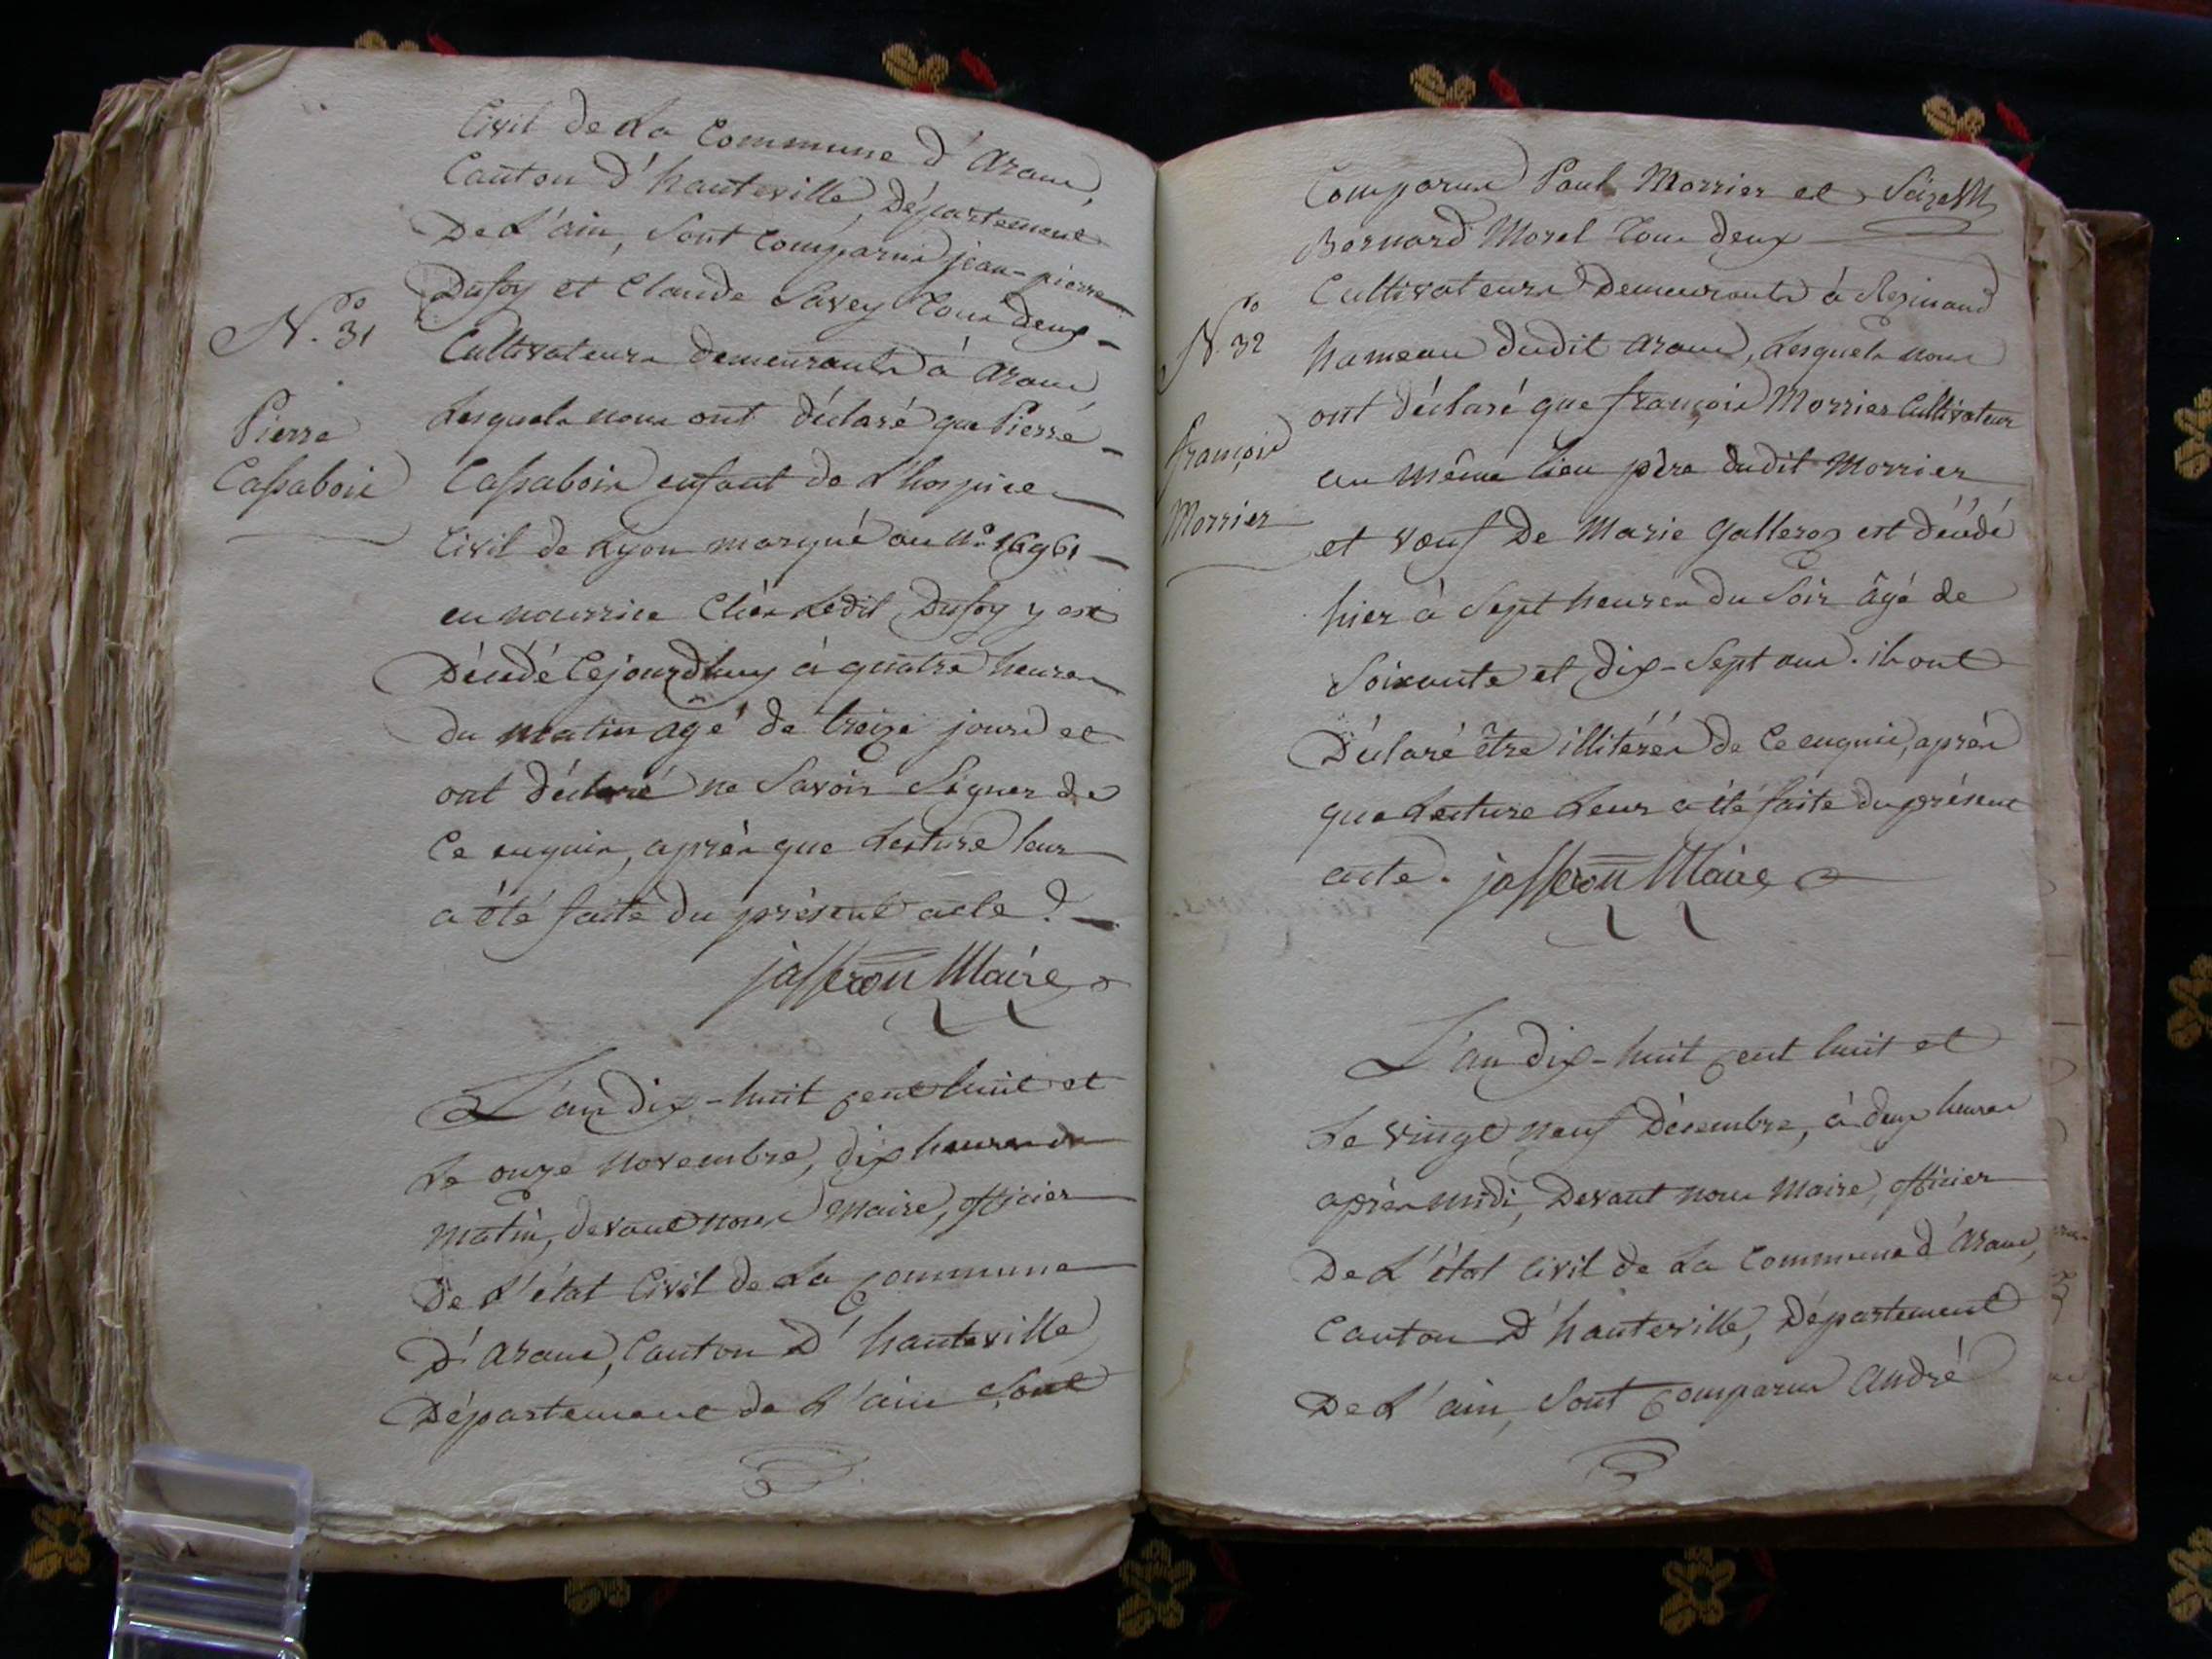 Civil de La Commune d'Aranc,
Canton d'hauteville, Département
De L'ain, Sont Comparus jean-pierre
Dufoy et Claude Savey Tous deux
N.o 31
Cultivateurs demeurants à Aranc,
Lesquels nous ont déclaré que Pierre
Pierre
Cassabois
Cassabois enfant de L'hospice
Civil de Lyon marqué au N.o 16961
en nourrice Chés Ledit Dufoy y est
Décédé Cejourdhuy à quatre heures
du matin âgé de treize jours et
ont déclaré ne Savoir Signer de
Ce enquis, après que Lecture leur
a été faite du présent acte.
jasseron Maire
L'an dix-huit cent huit et
Le onze Novembre, dix heures du
matin, devant nous Maire, officier
de L'état Civil de La Commune
D'Aranc, Canton D'hauteville
Département de L'ain Sont
Comparus Paul Morrier et
Bernard Morel Tous deux
Cultivateurs Demeurants à Resinand
N.o 32
hameau dudit Aranc, Lesquels nous
ont déclaré que françois Morrier Cultivateur
françois
Morrier
au même lieu père dudit Morrier
et veuf De Marie Galleros est décédé
hier à Sept heures du Soir âgé de
Soixante et dix-Sept ans. ils ont
Déclaré être illitérés de Ce enquis, après
que Lecture Leur a été faite du présent
acte. jasseron Maire
L'an dix-huit cent huit et
Le vingt neuf Décembre, à deux heures
après midi, Devant nous Maire, officier
De L'état Civil de La Commune d'Aranc,
Canton D'hauteville, Département
De L'ain, Sont Comparus André